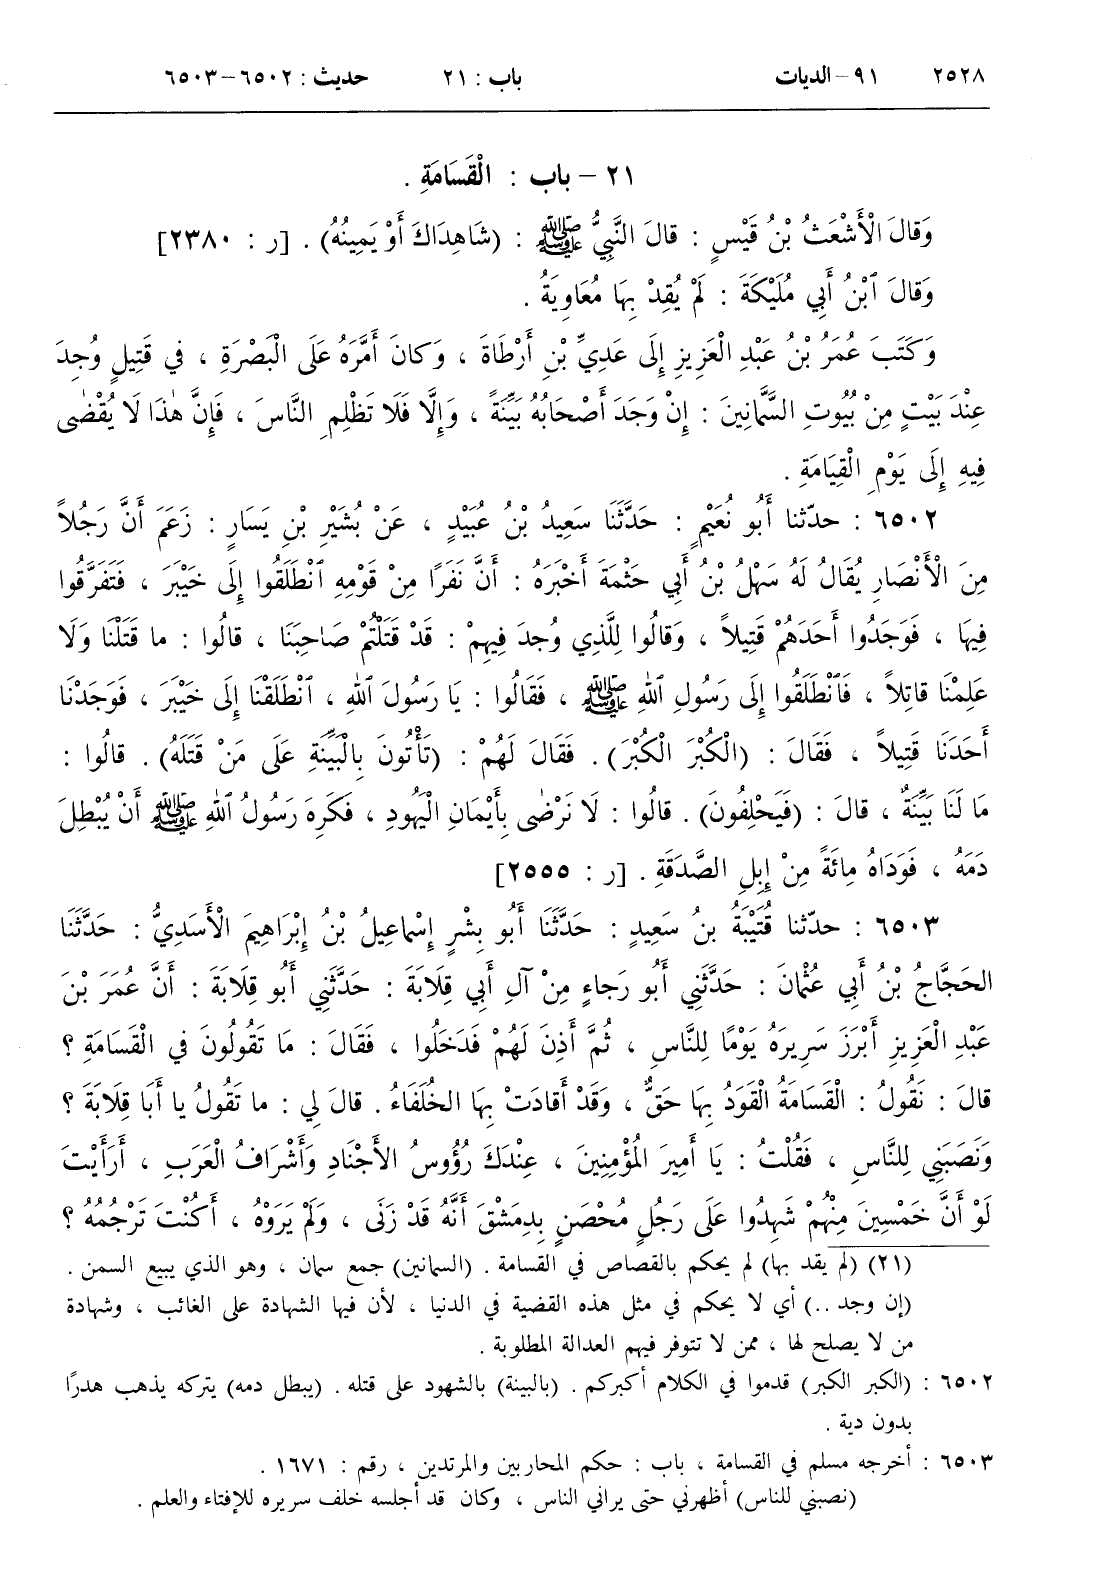 ٢٥٢٨ ٩١- الديات باب : ٢١ حديث : ٦٥٠٢-٦٥٠٣
٢١ – باب : الْقَسَامَةِ .
وَقالَ الْأَشْعَثُ بْنُ قَيْسٍ : قالَ النَّبِيُّ ﷺ : (شَاهِدَاكَ أَوْ يَمِينُهُ) . [ر : ٢٣٨٠]
وَقالَ ٱبْنُ أَبِي مُلَيْكَةَ : لَمْ يُقِدْ بِهَا مُعَاوِيَةُ .
وَكَتَبَ عُمَرُ بْنُ عَبْدِ الْعَزِيزِ إِلَى عَدِيِّ بْنِ أَرْطَاةَ ، وَكانَ أَمَّرَهُ عَلَى الْبَصْرَةِ ، في قَتِيلٍ وُجِدَ
عِنْدَ بَيْتٍ مِنْ بُيُوتِ السَّمَّانِينَ : إِنْ وَجَدَ أَصْحَابُهُ بَيِّنَةً ، وَإِلَّا فَلَا تَظْلِمِ النَّاسَ ، فَإِنَّ هٰذَا لَا يُقْضٰى
فِيهِ إِلَى يَوْمِ الْقِيَامَةِ .
٦٥٠٢ : حدّثنا أَبُو نُعَيْمٍ : حَدَّثَنَا سَعِيدُ بْنُ عُبَيْدٍ ، عَنْ بُشَيْرِ بْنِ يَسَارٍ : زَعَمَ أَنَّ رَجُلاً
مِنَ الْأَنْصَارِ يُقَالُ لَهُ سَهْلُ بْنُ أَبِي حَثْمَةَ أَخْبَرَهُ : أَنَّ نَفَرًا مِنْ قَوْمِهِ ٱنْطَلَقُوا إِلَى خَيْبَرَ ، فَتَفَرَّقُوا
فِيهَا ، فَوَجَدُوا أَحَدَهُمْ قَتِيلاً ، وَقالُوا لِلَّذِي وُجِدَ فِيهِمْ : قَدْ قَتَلْتُمْ صَاحِبَنَا ، قالُوا : ما قَتَلْنَا وَلَا
عَلِمْنَا قاتِلاً ، فَٱنْطَلَقُوا إِلَى رَسُولِ ٱللهِ ﷺ ، فَقَالُوا : يَا رَسُولَ ٱللهِ ، ٱنْطَلَقْنَا إِلَى خَيْبَرَ ، فَوَجَدْنَا
أَحَدَنَا قَتِيلاً ، فَقَالَ : (الْكُبْرَ الْكُبْرَ) . فَقَالَ لَهُمْ : (تَأْتُونَ بِالْبَيِّنَةِ عَلَى مَنْ قَتَلَهُ) . قالُوا :
مَا لَنَا بَيِّنَةٌ ، قالَ : (فَيَحْلِفُونَ) . قالُوا : لَا نَرْضٰى بِأَيْمَانِ الْيَهُودِ ، فَكَرِهَ رَسُولُ ٱللهِ ﷺ أَنْ يُبْطِلَ
دَمَهُ ، فَوَدَاهُ مِائَةً مِنْ إِبِلِ الصَّدَقَةِ . [ر : ٢٥٥٥]
٦٥٠٣ : حدّثنا قُتَيْبَةُ بنُ سَعِيدٍ : حَدَّثَنَا أَبُو بِشْرٍ إِسْماعِيلُ بْنُ إِبْرَاهِيمَ الْأَسَدِيُّ : حَدَّثَنَا
الحَجَّاجُ بْنُ أَبِي عُثْمانَ : حَدَّثَنِي أَبُو رَجاءٍ مِنْ آلِ أَبِي قِلَابَةَ : حَدَّثَنِي أَبُو قِلَابَةَ : أَنَّ عُمَرَ بْنَ
عَبْدِ الْعَزِيزِ أَبْرَزَ سَرِيرَهُ يَوْمًا لِلنَّاسِ ، ثُمَّ أَذِنَ لَهُمْ فَدَخَلُوا ، فَقَالَ : مَا تَقُولُونَ في الْقَسَامَةِ ؟
قالَ : نَقُولُ : الْقَسَامَةُ الْقَوَدُ بِهَا حَقٌّ ، وَقَدْ أَقادَتْ بِهَا الخُلَفَاءُ . قالَ لِي : ما تَقُولُ يا أَبَا قِلَابَةَ ؟
وَنَصَبَنِي لِلنَّاسِ ، فَقُلْتُ : يَا أَمِيرَ المُؤْمِنِينَ ، عِنْدَكَ رُؤُوسُ الأَجْنَادِ وَأَشْرَافُ الْعَرَبِ ، أَرَأَيْتَ
لَوْ أَنَّ خَمْسِينَ مِنْهُمْ شَهِدُوا عَلَى رَجُلٍ مُحْصَنٍ بِدِمَشْقَ أَنَّهُ قَدْ زَنَى ، وَلَمْ يَرَوْهُ ، أَكُنْتَ تَرْجُمُهُ ؟
(٢١) (لم يقد بها) لم يحكم بالقصاص في القسامة . (السمانين) جمع سمان ، وهو الذي يبيع السمن .
(إن وجد ..) أي لا يحكم في مثل هذه القضية في الدنيا ، لأن فيها الشهادة على الغائب ، وشهادة
من لا يصلح لها ، ممن لا تتوفر فيهم العدالة المطلوبة .
٦٥٠٢ : (الكبر الكبر) قدموا في الكلام أكبركم . (بالبينة) بالشهود على قتله . (يبطل دمه) يتركه يذهب هدرًا
بدون دية .
٦٥٠٣ : أخرجه مسلم في القسامة ، باب : حكم المحاربين والمرتدين ، رقم : ١٦٧١ .
(نصبني للناس) أظهرني حتى يراني الناس ، وكان قد أجلسه خلف سريره للإفتاء والعلم .